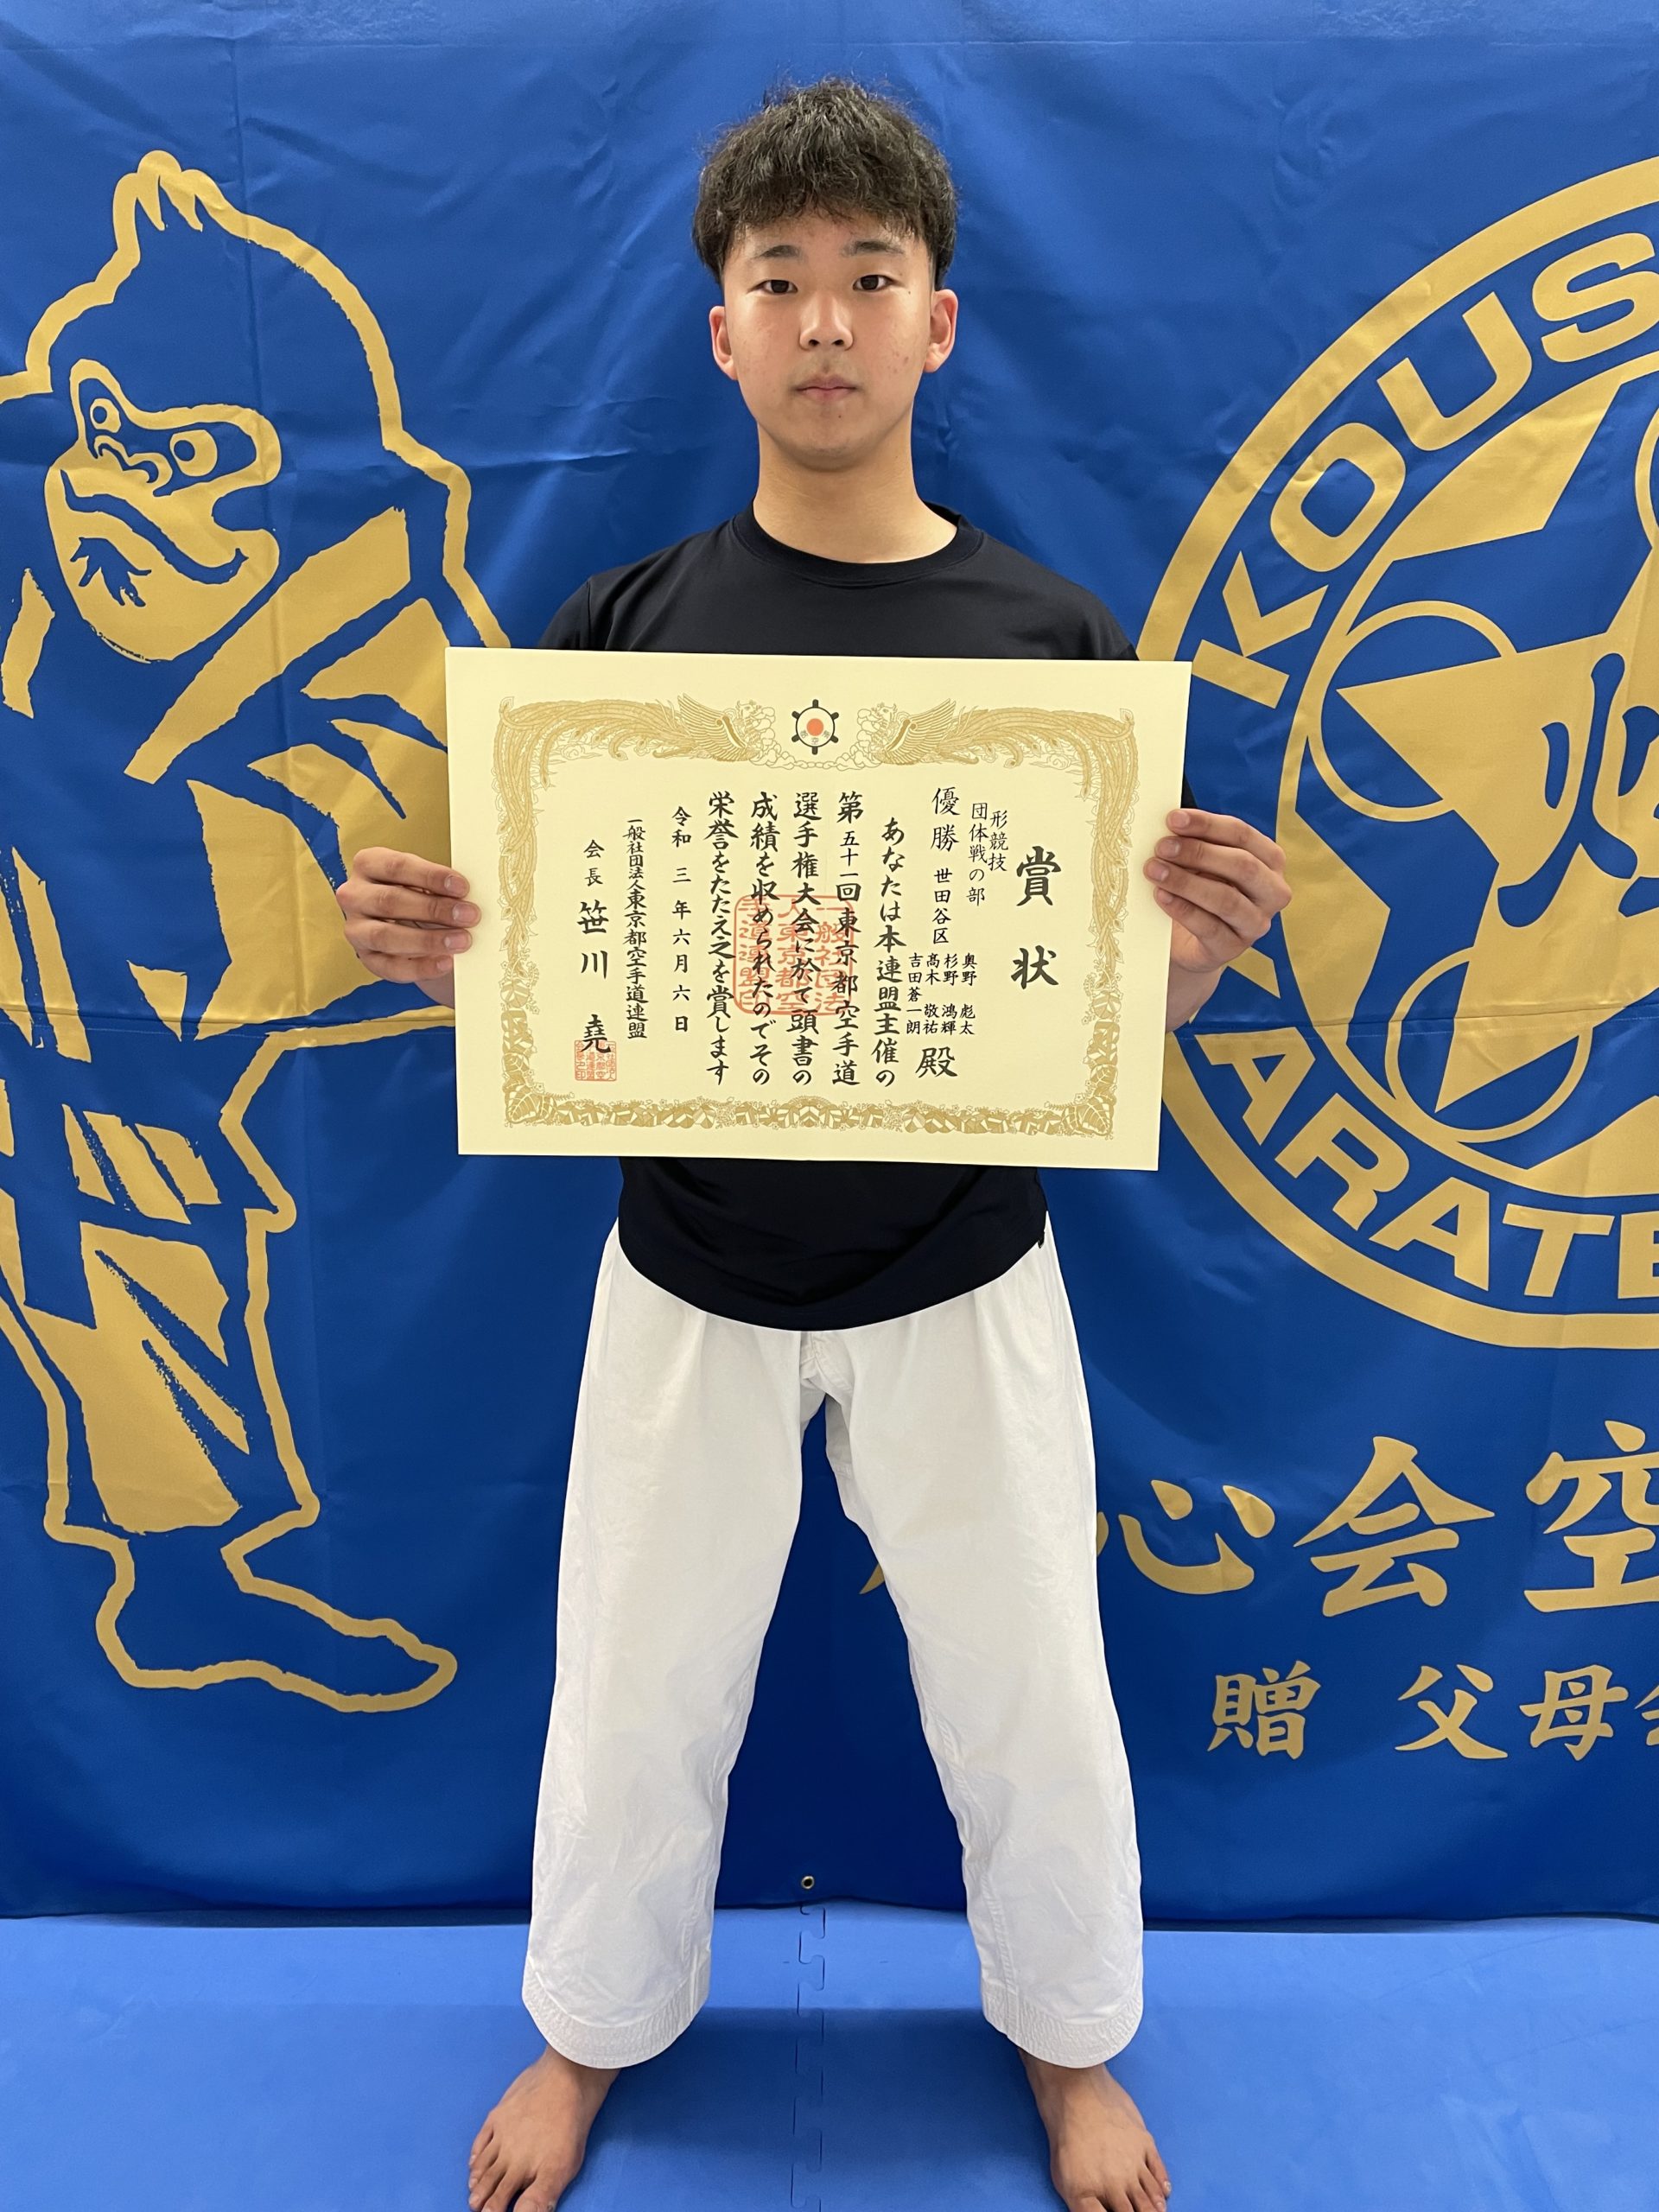 賞状
形競技
団体戦の部
優勝 世田谷区
奥野 彪太
杉野 鴻輝
髙木 敬祐
吉田蒼一朗
殿
あなたは本連盟主催の
第五十一回東京都空手道
選手権大会に於て頭書の
成績を収められたのでその
栄誉をたたえ之を賞します
令和三年六月六日
一般社団法人東京都空手道連盟
会長 笹川 堯
KOUS
KARATE
心会空
贈 父母会